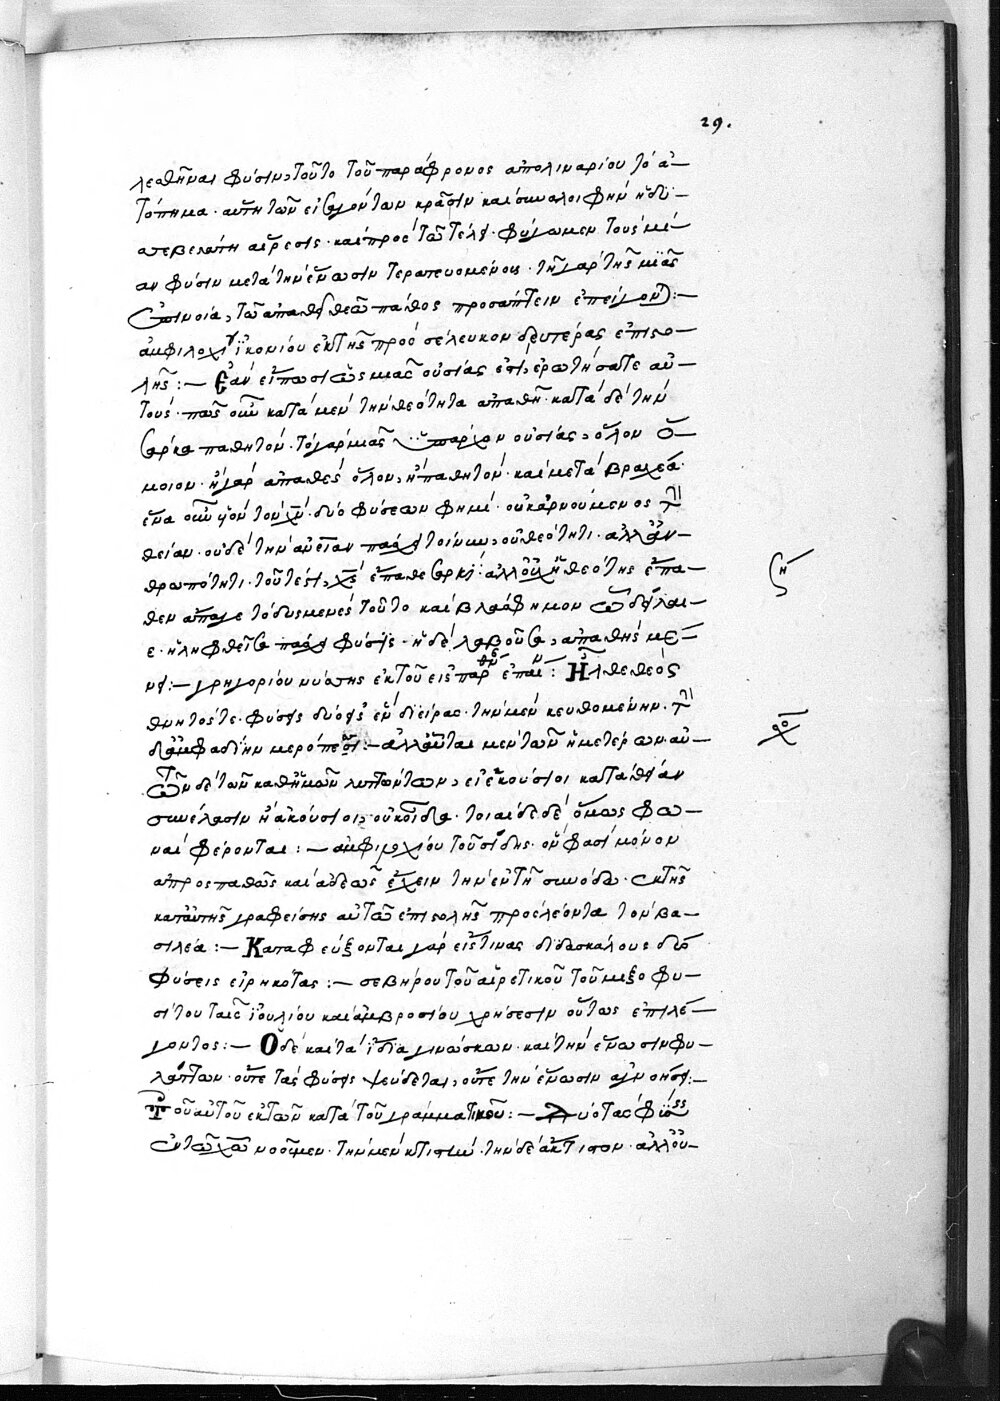 29.
λεσθῆναι φύσιν, τοῦτο τοῦ παράφρονος ἀπολιναρίου τὸ ἀ-
τόπημα· αὕτη τῶν εἰσαγόντων κρᾶσιν καὶ συναλοιφὴν ἡ δυ-
σσεβεστάτη αἵρεσις· καὶ πρὸς τῶ τέλει· φύγωμεν τοὺς μί-
αν φύσιν μετὰ τὴν ἕνωσιν τερατευομένους· τῆ γὰρ τῆς μιᾶς
ἐπινοία, τῶ ἀπαθεῖ θεῶ πάθος προσάπτειν ἐπείγονται:-
ἀμφιλοχίου ἰκονίου ἐκ τῆς πρὸς σέλευκον δευτέρας ἐπιστο-
λῆς:- Ἐὰν εἴπωσιν ὡς μιᾶς οὐσίας ἐστὶ, ἐρωτήσατε αὐ-
τούς· πῶς οὖν κατὰ μὲν τὴν θεότητα ἀπαθῆ· κατὰ δὲ τὴν
σάρκα παθητόν· τὸ γὰρ μιᾶς ὑπάρχον οὐσίας, ὅλον ὅ-
μοιον· ἢ γὰρ ἀπαθὲς ὅλον, ἢ παθητόν· καὶ μετὰ βραχέα·
ἕνα οὖν υἱόν τὸν χν· δύο φύσεων φημί· οὐκ ἀρνούμενος τὴν
θείαν· οὐδὲ τὴν ἀνείαν πάσχει τοίνυν, οὐ θεότητι· ἀλλ' ἀν-
θρωπότητι· τουτέστι, χς ἔπαθε σαρκί· ἀλλ' οὐχ ἡ θεότης ἔπα-
θεν ἄπαγε τὸ δυσμενὲς τοῦτο καὶ βλάσφημον ὦ δείλαι-
ε· ἡ ληφθεῖσα πάσχει φύσις· ἡ δὲ λαβοῦσα, ἀπαθὴς μέ-
νει:- γρηγορίου νύσσης ἐκ τοῦ εἰς παρθεν ἔπαιν: Ἦλθε θεὸς
θνητός τε· φύσεις δύο εἰς ἓν ἀγείρας· τὴν μὲν κευθομένην· τὴν
δ' ἀμφαδίην μερόπεσσι:- ἀλλ' αὗται μὲν τῶν ἡμετέρων αὐ-
τῶν δὲ τῶν καθ' ἡμῶν λυττώντων, εἰ ἑκούσιοι κατά
συνέλασιν ἢ ἀκούσιοι, οὐκ οἶδα· τοιαίδε δὲ ὅμως φω-
ναὶ φέρονται:- ἀμφιλοχίου τοῦ σίδης· ὅν φασὶ μόνον
ἀπροσπαθῶς καὶ ἀδεῶς ἔχειν τὴν ἐν τῆ συνόδω· ἐκ τῆς
κατ' αὐτῆς γραφείσης αὐτῶ ἐπιστολῆς πρὸς λέοντα τὸν βα-
σιλέα:- Καταφεύξονται γὰρ εἴς τινας διδασκάλους δύο
φύσεις εἰρηκότας:- σεβήρου τοῦ αἱρετικοῦ τοῦ μιξοφυ-
σίτου ταῖς ἰουλίου καὶ ἀμβροσίου χρήσεσιν οὕτως ἐπιλέ-
γοντος:- Ὁ δὲ καὶ τὰ ἴδια γινώσκων· καὶ τὴν ἕνωσιν φυ-
λάττων· οὔτε τὰς φύσεις ψεύδεται, οὔτε τὴν ἕνωσιν ἀγνοήσει:-
Τοῦ αὐτοῦ ἐκ τῶν κατὰ τοῦ γραμματικοῦ:- Δύο τὰς φύσεις
ἐν τῶ χω νοοῦμεν· τὴν μὲν κτιστήν· τὴν δὲ ἄκτιστον· ἀλλ' οὐ-